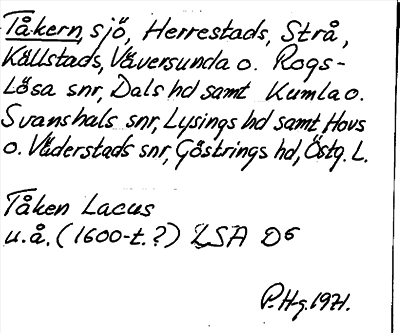 Tåkern, sjö, Herrestads, Strå,
Källstads, Väversunda o. Rogs-
lösa snr, Dals hd samt Kumla o.
Svanshals snr, Lysings hd samt Hovs
o. Väderstads snr, Göstrings hd, Östg. L.
Tåken Lacus
u.å. (1600-t.?) LSA D6
P.Hg. 1971.